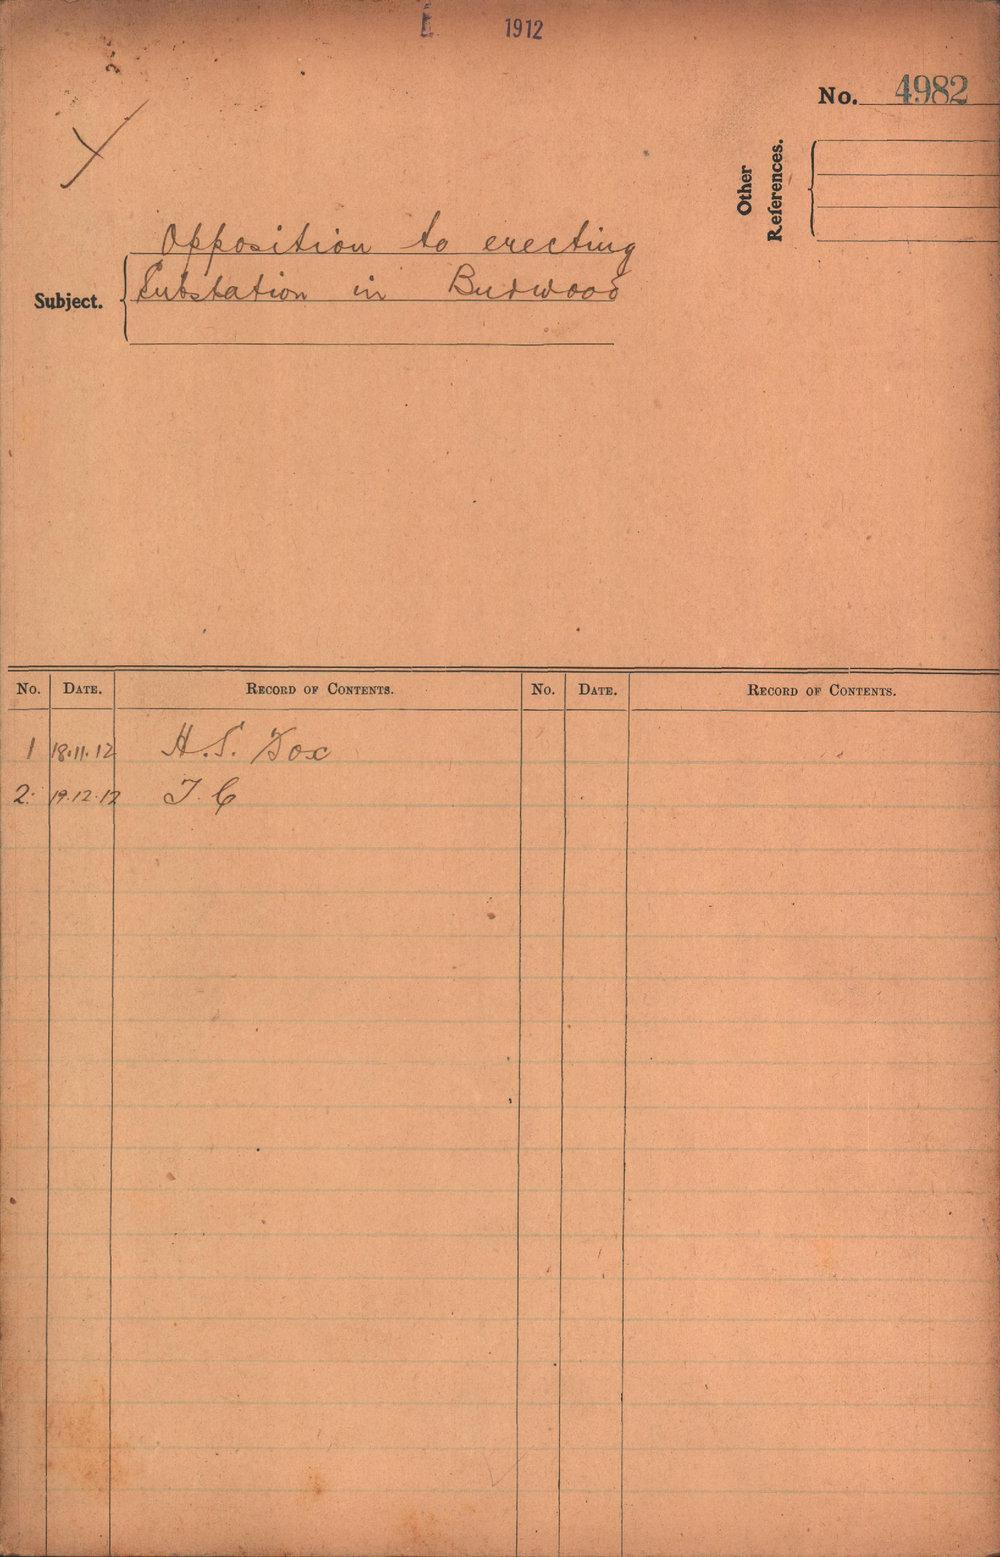 1912
No. 4982
Other
References.
Opposition to erecting
Subject. Substation in Burwood
No. DATE. RECORD OF CONTENTS. No. DATE. RECORD OF CONTENTS.
1 18.11.12 H.S. Fox
2. 19.12.12 T. C